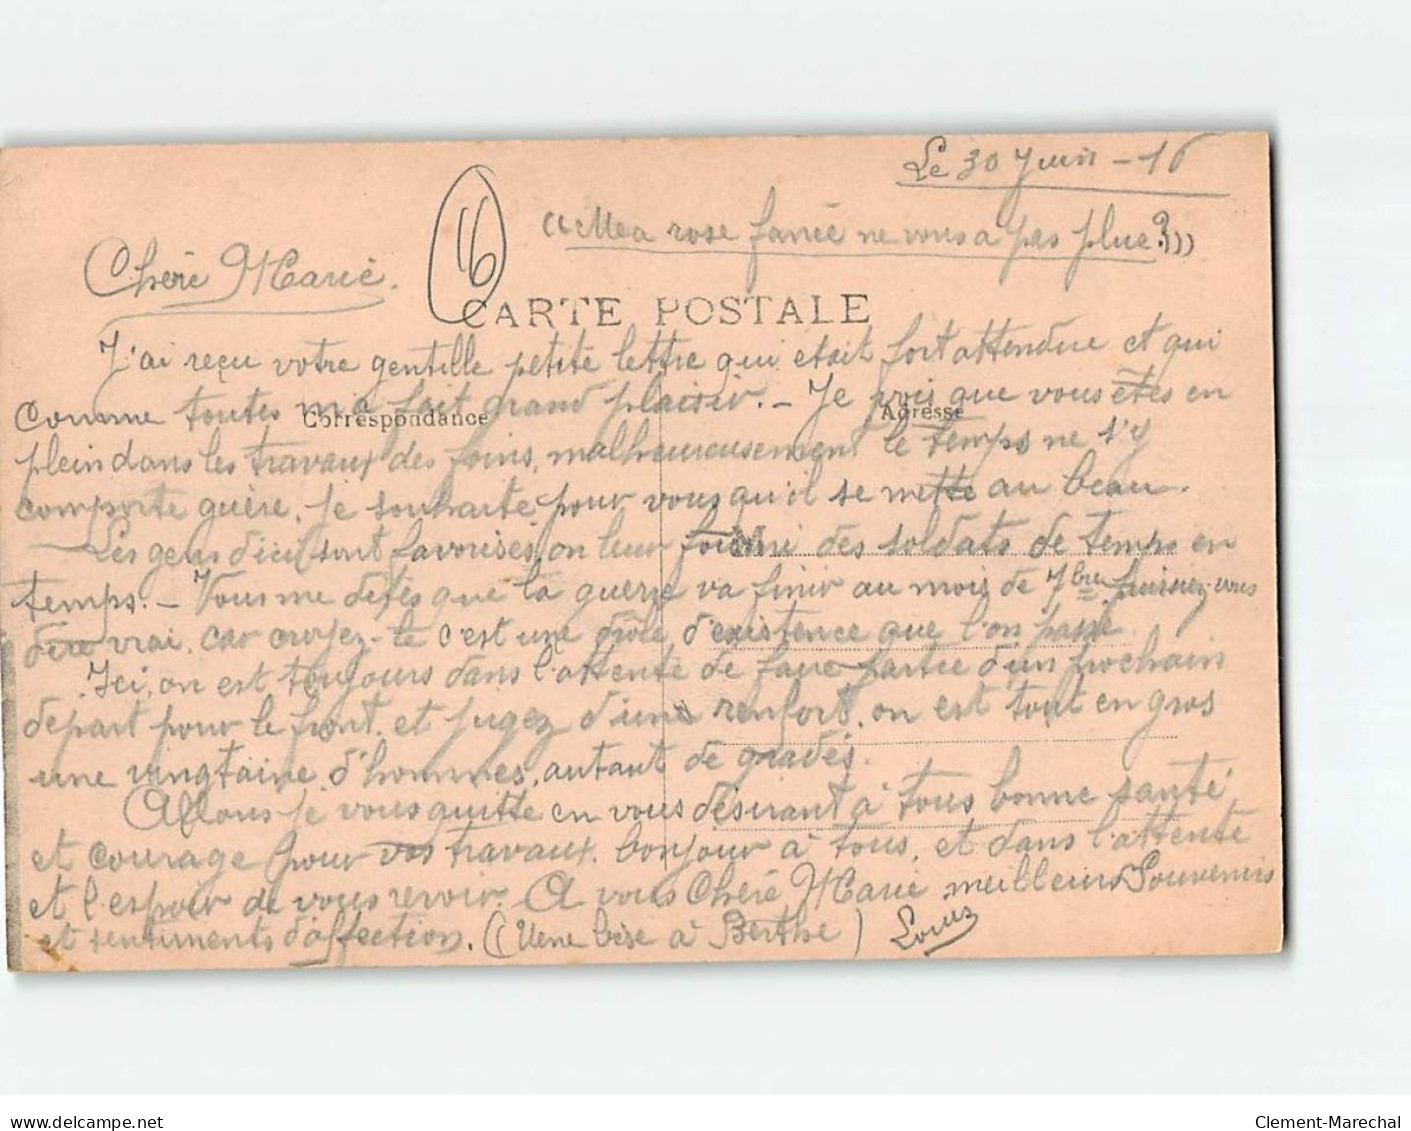 Le 30 Juin - 16
"Mea rose fanée ne vous a pas plue?"
16
Chère Marie.
CARTE POSTALE
J'ai reçu votre gentille petite lettre qui etait fort attendue et qui
comme toutes m'a fait grand plaisir. - Je vois que vous êtes en
Correspondance
Adresse
plein dans les travaux des foins, malheureusement le temps ne s'y
comporte guère. je souhaite pour vous qu'il se mette au beau.
M
Les gens d'ici sont favorisés, on leur fourni des soldats de temps en
temps. - Vous me dites que la guerre va finir au mois de 7bre puissiez-vous
dire vrai. car croyez-le c'est une drôle d'existence que l'on passe
Ici, on est toujours dans l'attente de faire partie d'un prochain
départ pour le front, et jugez d'un renfort, on est tout en gros
une vingtaine d'hommes, autant de gradés.
Allons je vous quitte en vous désirant à tous bonne santé
et courage pour vos travaux. bonjour à tous, et dans l'attente
et l'espoir de vous revoir. A vous Chère Marie meilleurs Souvenirs
et sentiments d'affection. (Une bise à Berthe) Louis
www.delcampe.net
Clement-Marechal